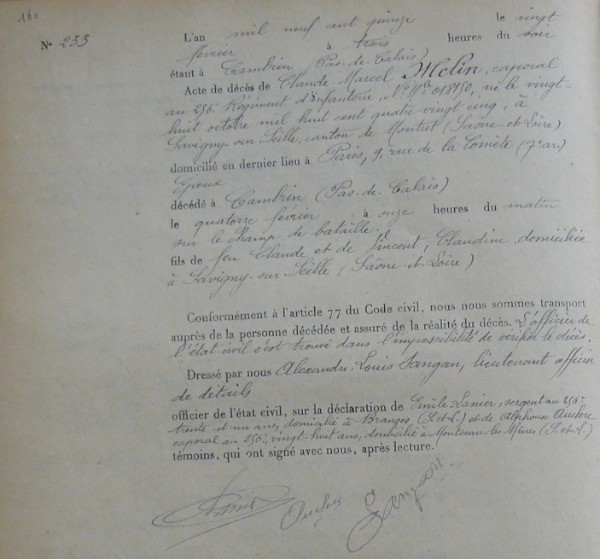 160
N° 233
L'an mil neuf cent quinze le vingt
février à trois heures du soir
étant à Cambrin (Pas-de-Calais)
Acte de décès de Claude-Marcel Melin, caporal
au 256e Régiment d'Infanterie, N° Mle 018450, né le vingt-
huit octobre mil huit cent quatre vingt cinq, à
Savigny-sur-Seille, canton de Montret (Saône-et-Loire)
domicilié en dernier lieu à Paris, 9, rue de la Comète (7e ar.)
Epoux
décédé à Cambrin (Pas-de-Calais)
le quatorze février à onze heures du matin
sur le champ de bataille.
fils de feu Claude et de Vincent, Claudine domiciliée
à Savigny-sur-Seille (Saône-et-Loire)
Conformément à l'article 77 du Code civil, nous nous sommes transport
auprès de la personne décédée et assuré de la réalité du décès. L'officier de
l'état civil s'est trouvé dans l'impossibilité de vérifier le décès.
Dressé par nous Alexandre-Louis Sangan, lieutenant officier
de détails
officier de l'état civil, sur la déclaration de Emile Lanier, sergent au 256e
trente et un ans, domicilié à Branges, (S.et.L.) et de Alphonse Auclere
caporal au 256e, vingt-huit ans, domicilié à Montceau-les-Mines (S.et.L.)
témoins, qui ont signé avec nous, après lecture.
Sangan